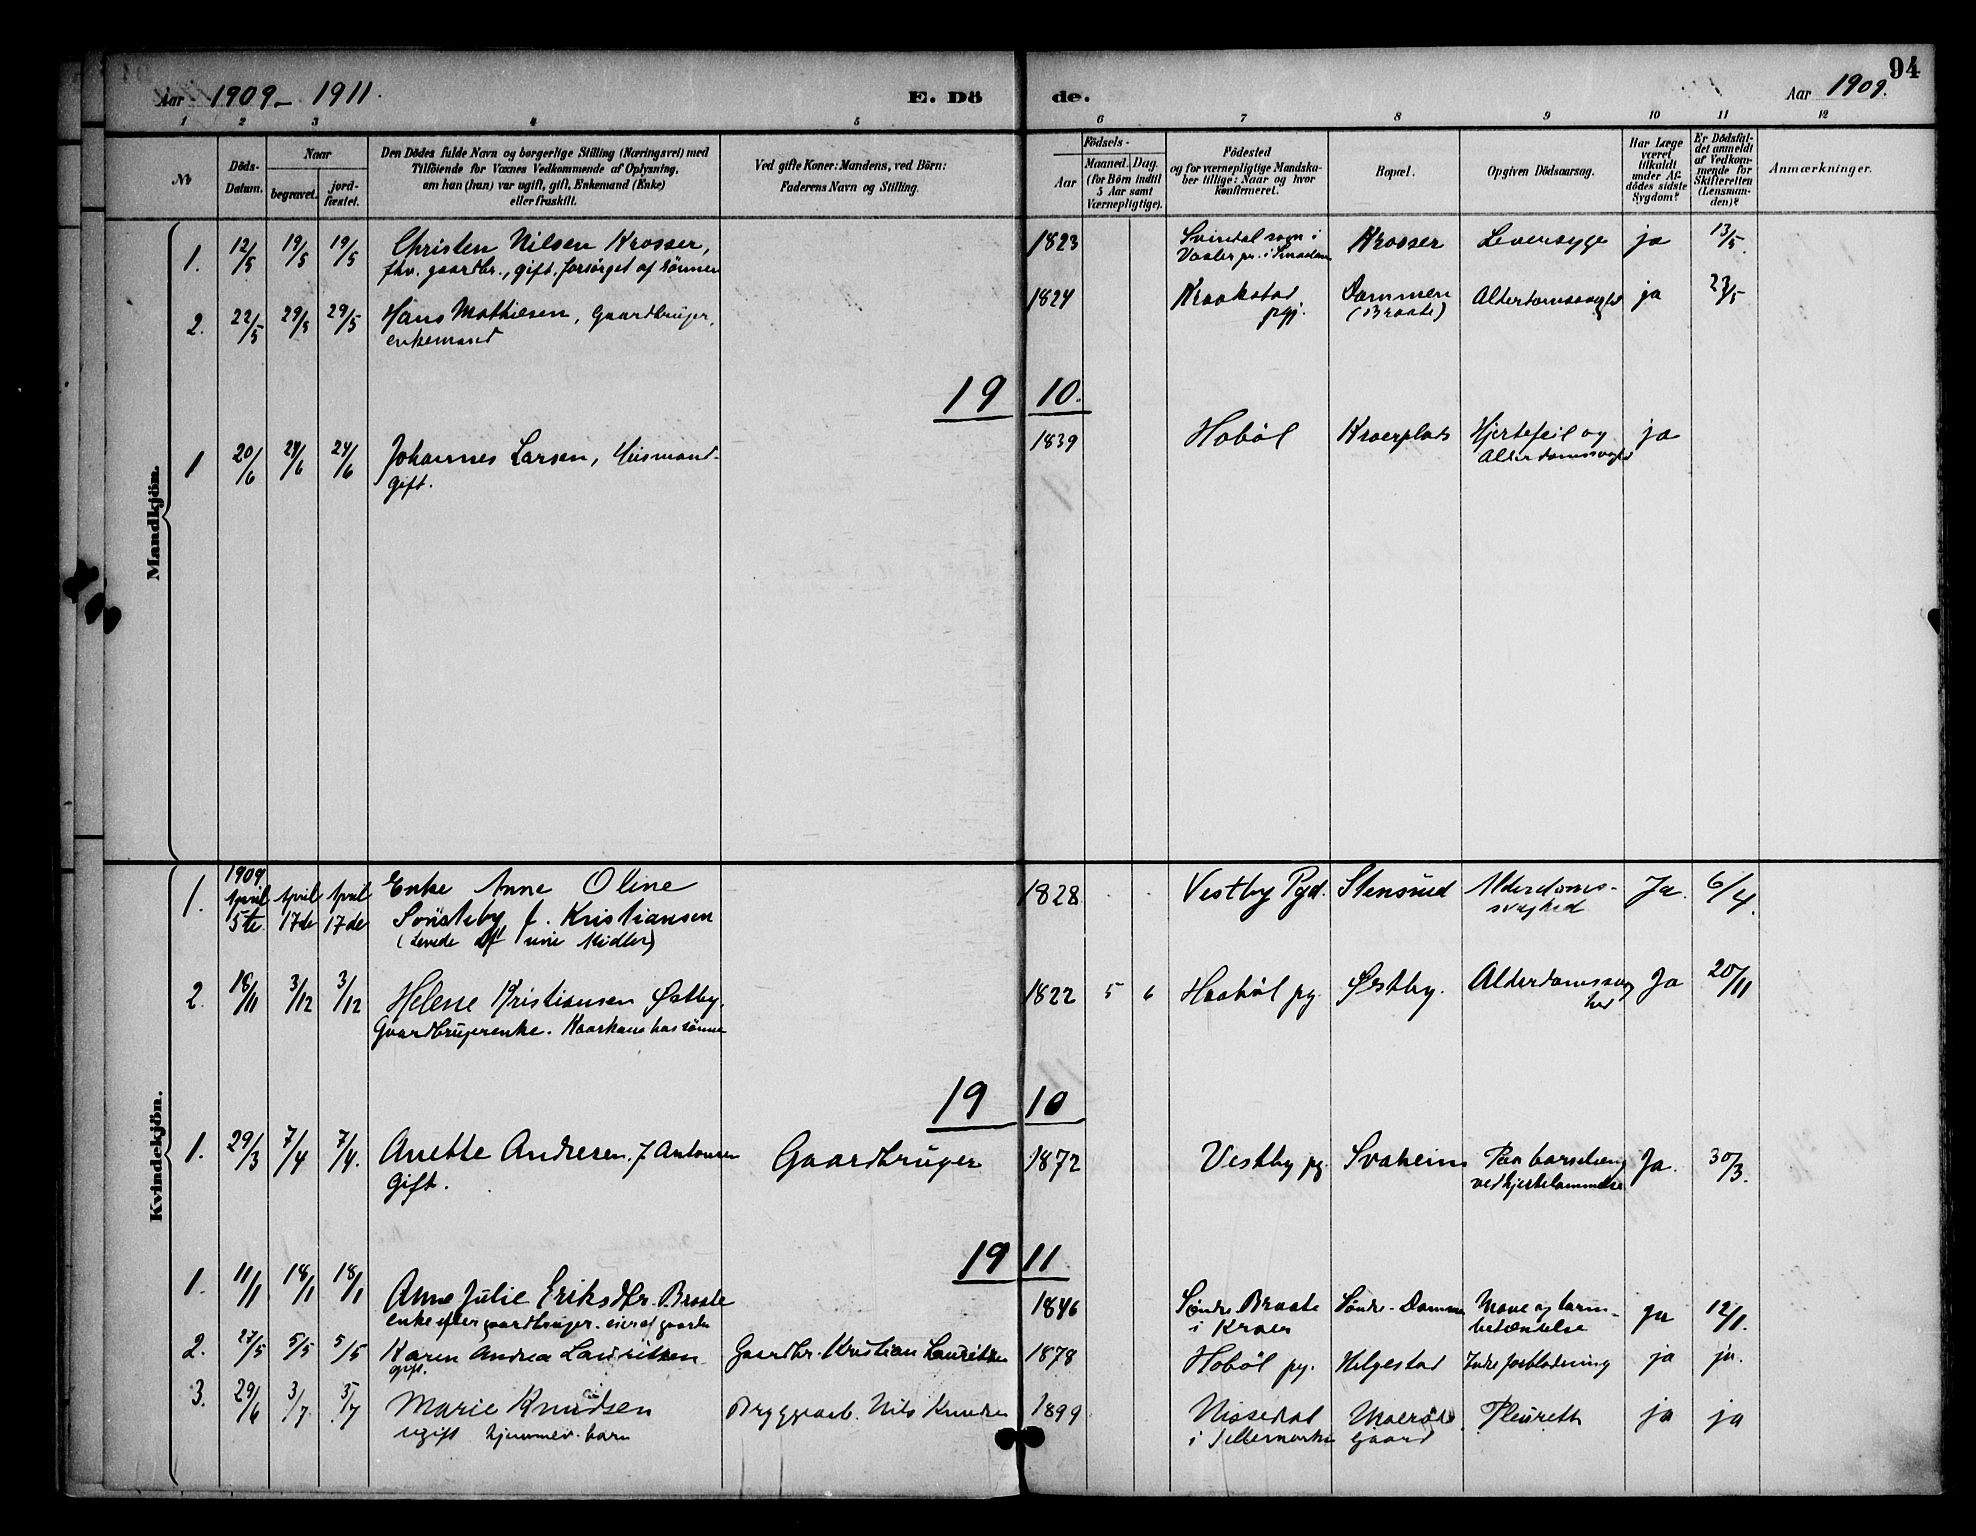 94
Aar 1909-1911. E. Döde. Aar 1909.
1 2 3 4 5 6 7 8 9 10 11 12
No
Döds-Datum.
Naar
begravet. jordfæstet.
Den Dödes fulde Navn og borgerlige Stilling (Næringsvei) med
Tilföiende for Voxnes Vedkommende af Oplysning,
om han (hun) var ugift, gift, Enkemand (Enke)
eller fraskilt.
Ved gifte Koner: Mandens, ved Börn:
Faderens Navn og Stilling.
Födsels-
Aar Maaned. Dag.
(for Börn indtil
5 Aar samt
Værnepligtige).
Födested
og for værnepligtige Mandska-
ber tillige: Naar og hvor
konfirmeret.
Bopæl.
Opgiven Dödsaarsag.
Har Læge
været
tilkaldt
under Af-
dödes sidste
Sygdom?
Er Dödsfal-
det anmeldt
af Vedkom-
mende for
Skifteretten
(Lensman-
den)?
Anmærkninger.
Mandkjön.
1. 12/5 19/5 19/5 Christen Nilsen Krosser, 1823 Svindal sogn i Krosser Leversyge ja 13/5
fhv. gaardbr., gift. forsörget af sönnen Vaaler pr. i Smaalen
2. 22/5 29/5 29/5 Hans Mathiesen, Gaardbruger, 1824 Kraakstad Dammen Alderdomssvaghed ja 23/5
enkemand pgj. (Braate)
1910.
1 20/6 24/6 24/6 Johannes Larsen, Husmand- 1839 Hobøl Kroerplads Hjertefeil og ja
gift. Alderdomssvaghd
Kvindekjön.
1909
1. April 5te April 17de April 17de Enke Anne Oline 1828 Vestby Pgd. Stensrud Alderdoms- Ja 6/4.
Sönsteby f. Kristiansen svaghed
(Levede af sine Midler)
2. 18/11 3/12 3/12 Helene Kristiansen Østby. 1822 5 6 Haabøl pg. Østby. Alderdomssvag Ja 20/11
Gaardbrugerenke. Kaarkone hos sønnen hed
1910
1. 29/3 7/4 7/4. Anette Andresen, f Antonsen Gaardbruger 1872 Vestby pg. Svaheim Paa barselseng Ja. 30/3.
Gift. ved hjertelammelse
1911
1. 11/1 18/1 18/1 Anne Julie Eriksdtr. Braate 1846 Søndre Braate Søndre-Dammen Mave og tarm- Ja 12/1.
enke efter gaardbruger. eier af gaarden i Kroer betændelse
2. 27/5 5/5 5/5 Karen Andrea Lauritsen Gaardbr. Kristian Lauritsen 1878 Hobøl pg. Helgestad Indre forblødning ja ja.
gift.
3. 29/6 3/7 3/7 Marie Knudsen Bryggearb. Nils Knudsen 1899 Nissedal Pleurett ja ja
ugift hjemmev. barn i Tellemarken Gaard